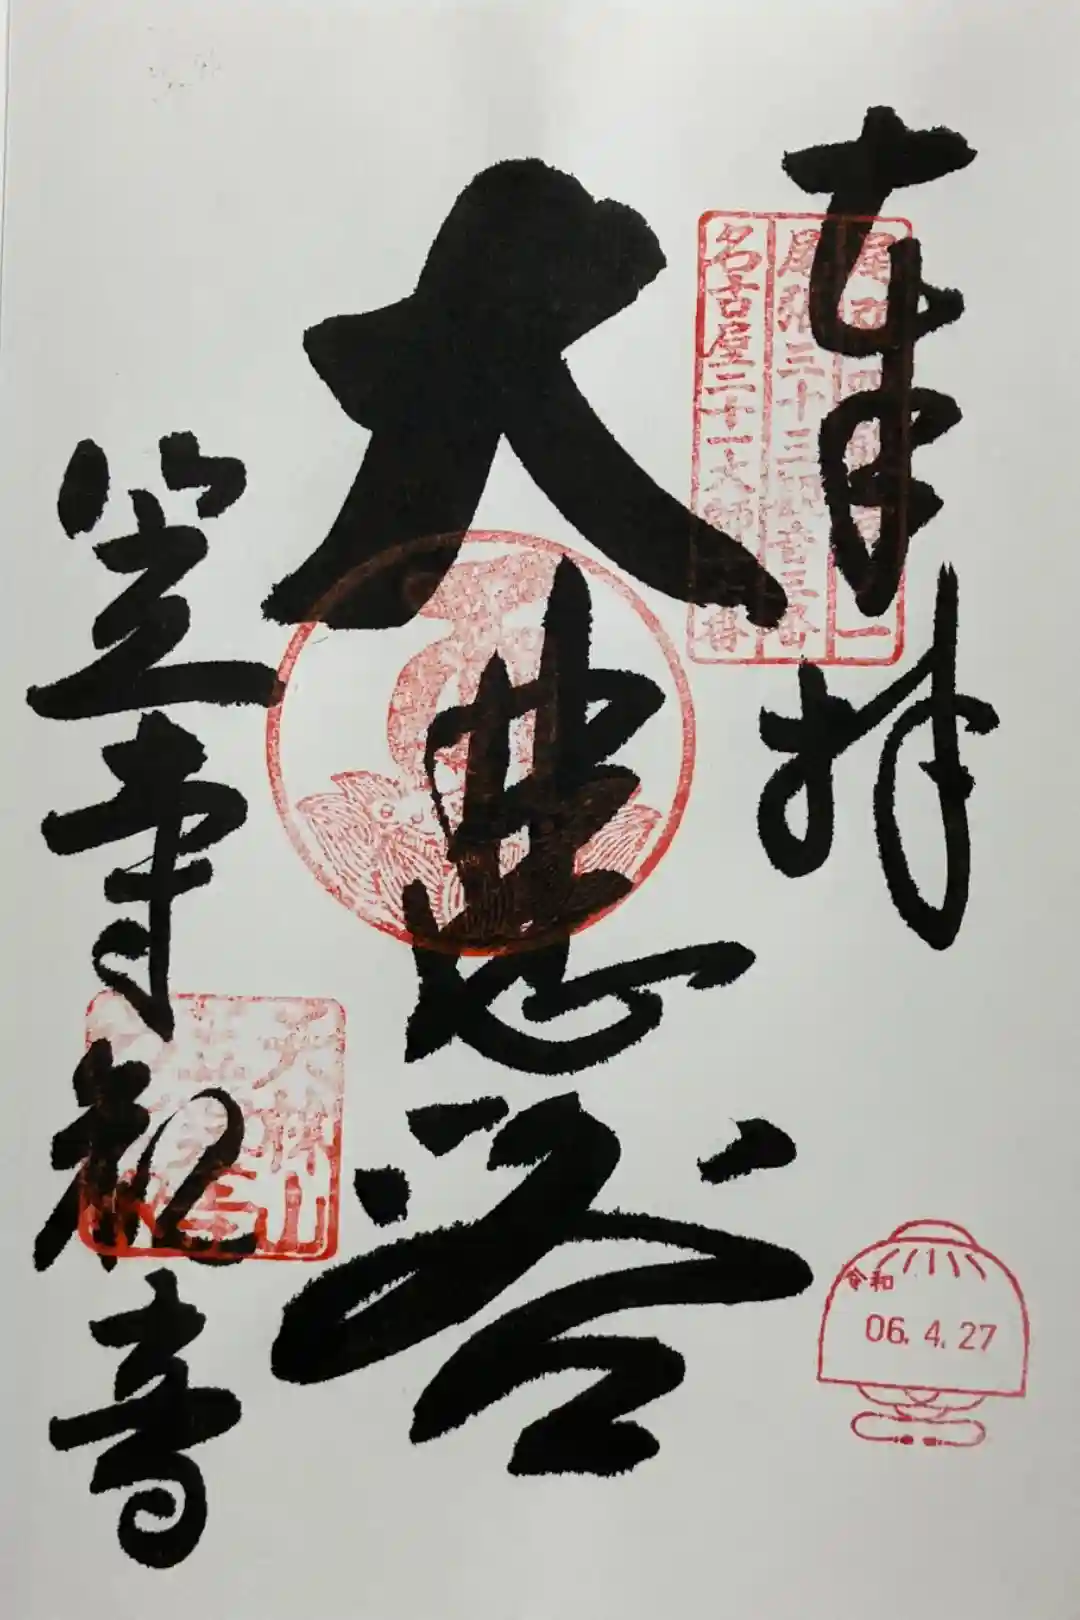 奉拝
尾張三十三観音三番
名古屋二十一大師一番
大悲容
笠寺観音
天林山
令和
06.4.27